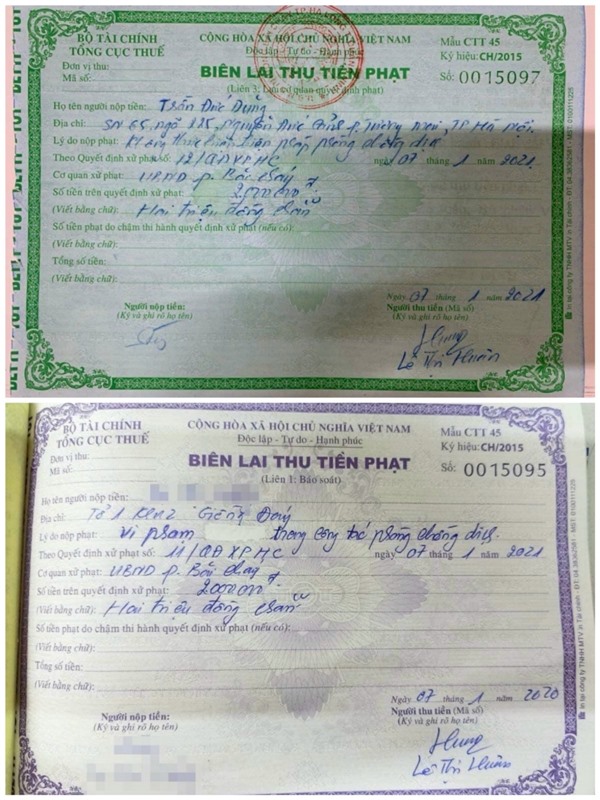 BỘ TÀI CHÍNH
TỔNG CỤC THUẾ
CỘNG HÒA XÃ HỘI CHỦ NGHĨA VIỆT NAM
Độc lập - Tự do - Hạnh phúc
Mẫu CTT 45
Ký hiệu: CH/2015
Đơn vị thu:
Mã số:
BIÊN LAI THU TIỀN PHẠT
Số: 0015097
(Liên 3: Lưu cơ quan quyết định phạt)
Họ tên người nộp tiền: Trần Đức Dũng
Địa chỉ: SN 65, ngõ 885, Nguyễn Đức Cảnh, p. Tương Mai, TP Hà Nội.
Lý do nộp phạt: biện pháp phòng chống dịch
Theo Quyết định xử phạt số: 12/QĐXPHC ngày 07 tháng 1 năm 2021
Cơ quan xử phạt: UBND p. Bãi Cháy
Số tiền trên quyết định xử phạt: 2.000.000đ
(Viết bằng chữ): Hai triệu đồng chẵn
Số tiền phạt do chậm thi hành quyết định xử phạt (nếu có):
(Viết bằng chữ):
Tổng số tiền:
(Viết bằng chữ):
Ngày 07 tháng 1 năm 2021
Người nộp tiền:
(Ký và ghi rõ họ tên)
Người thu tiền (Mã số)
(Ký và ghi rõ họ tên)
Hung
Lê Thị Huân
In tại công ty TNHH MTV In Tài chính - ĐT: 04.38362581 - MST: 0100111225
BỘ TÀI CHÍNH
TỔNG CỤC THUẾ
CỘNG HÒA XÃ HỘI CHỦ NGHĨA VIỆT NAM
Độc lập - Tự do - Hạnh phúc
Mẫu CTT 45
Ký hiệu: CH/2015
Đơn vị thu:
Mã số:
BIÊN LAI THU TIỀN PHẠT
Số: 0015095
(Liên 1: Báo soát)
Họ tên người nộp tiền:
Địa chỉ: Tổ 1 Khu 2 Giếng Đáy
Lý do nộp phạt: vi phạm trong công tác phòng chống dịch.
Theo Quyết định xử phạt số: 11/QĐXPHC ngày 07 tháng 1 năm 2021
Cơ quan xử phạt: UBND p. Bãi Cháy
Số tiền trên quyết định xử phạt: 2.000.000đ
(Viết bằng chữ): Hai triệu đồng chẵn
Số tiền phạt do chậm thi hành quyết định xử phạt (nếu có):
(Viết bằng chữ):
Tổng số tiền:
(Viết bằng chữ):
Ngày 07 tháng 1 năm 2020
Người nộp tiền:
(Ký và ghi rõ họ tên)
Người thu tiền (Mã số)
(Ký và ghi rõ họ tên)
Hung
Lê Thị Huân
In tại công ty TNHH MTV In Tài chính - ĐT: 04.38362581 - MST: 0100111225